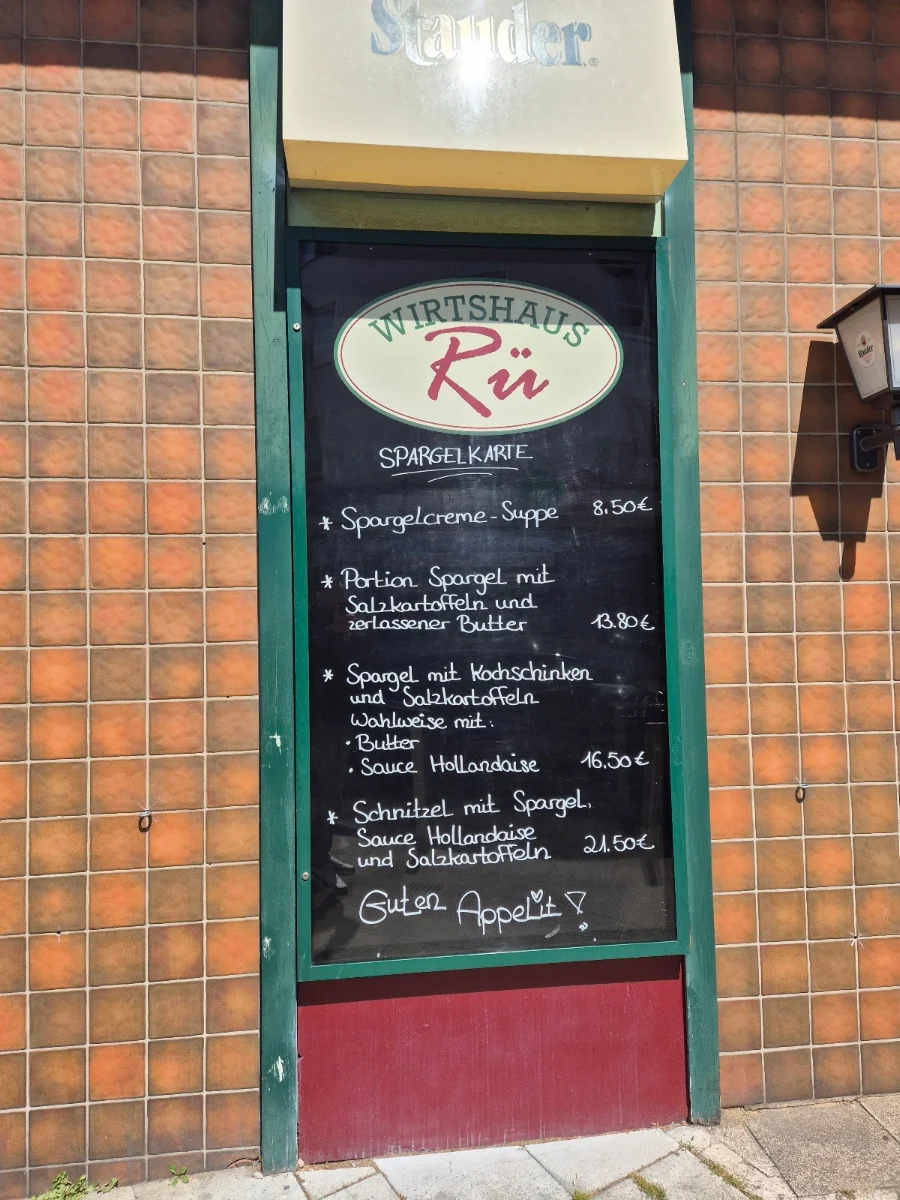 Stauder®
WIRTSHAUS
Rü
SPARGELKARTE
* Spargelcreme-Suppe 8.50€
* Portion Spargel mit
Salzkartoffeln und
zerlassener Butter 13.80€
* Spargel mit Kochschinken
und Salzkartoffeln
Wahlweise mit:
• Butter
• Sauce Hollandaise 16.50€
* Schnitzel mit Spargel,
Sauce Hollandaise
und Salzkartoffeln 21.50€
Guten Appetit!
Stauder